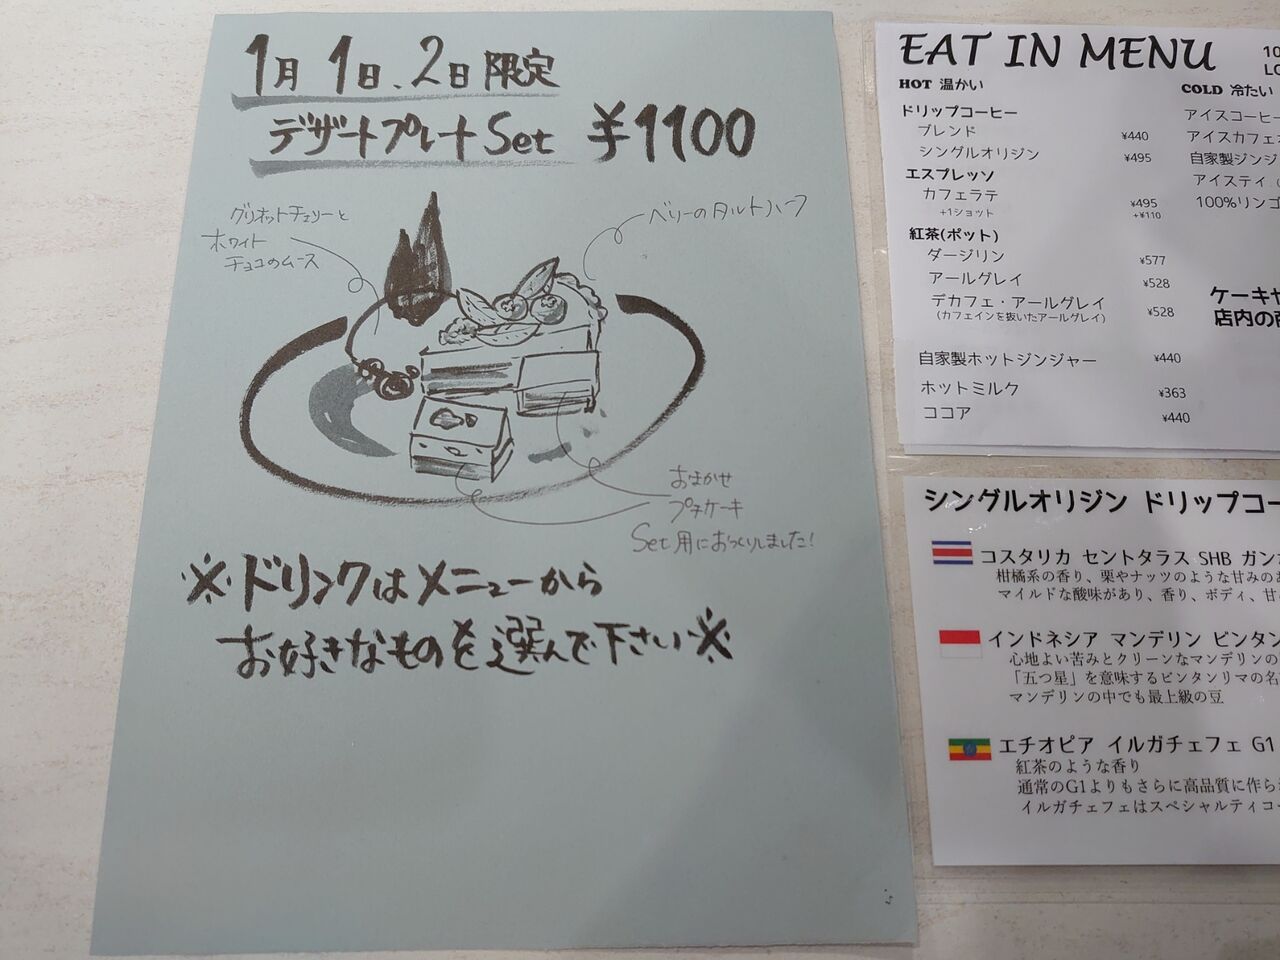 1月1日、2日限定
デザートプレートSet ¥1100
グリオットチェリーと
ホワイト
チョコのムース
ベリーのタルトハーフ
おまかせ
プチケーキ
Set用におつくりしました!
※ドリンクはメニューから
お好きなものを選んで下さい※
EAT IN MENU
HOT 温かい
ドリップコーヒー
ブレンド ¥440
シングルオリジン ¥495
エスプレッソ
カフェラテ ¥495
+1ショット +¥110
紅茶(ポット)
ダージリン ¥577
アールグレイ ¥528
デカフェ・アールグレイ ¥528
(カフェインを抜いたアールグレイ)
自家製ホットジンジャー ¥440
ホットミルク ¥363
ココア ¥440
10
LO
COLD 冷たい
アイスコーヒー
アイスカフェ
自家製ジンジ
アイスティ
100%リンゴ
ケーキヤ
店内の
シングルオリジン ドリップコー
コスタリカ セントタラス SHB ガン
柑橘系の香り、栗やナッツのような甘みの
マイルドな酸味があり、香り、ボディ、甘
インドネシア マンデリン ビンタン
心地よい苦みとクリーンなマンデリンの
「五つ星」を意味するビンタンリマの名
マンデリンの中でも最上級の豆
エチオピア イルガチェフェ G1
紅茶のような香り
通常のG1よりもさらに高品質に作ら
イルガチェフェはスペシャルティコー